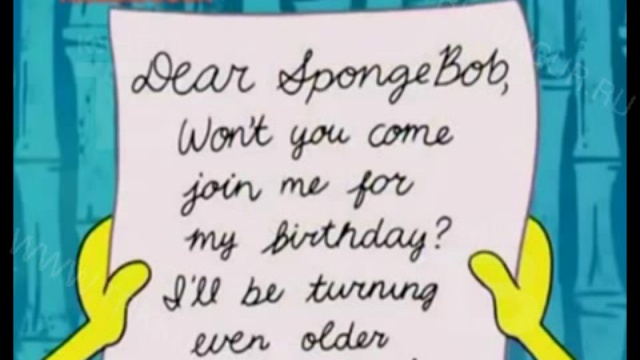 Dear SpongeBob,
Won't you come
join me for
my birthday?
I'll be turning
even older